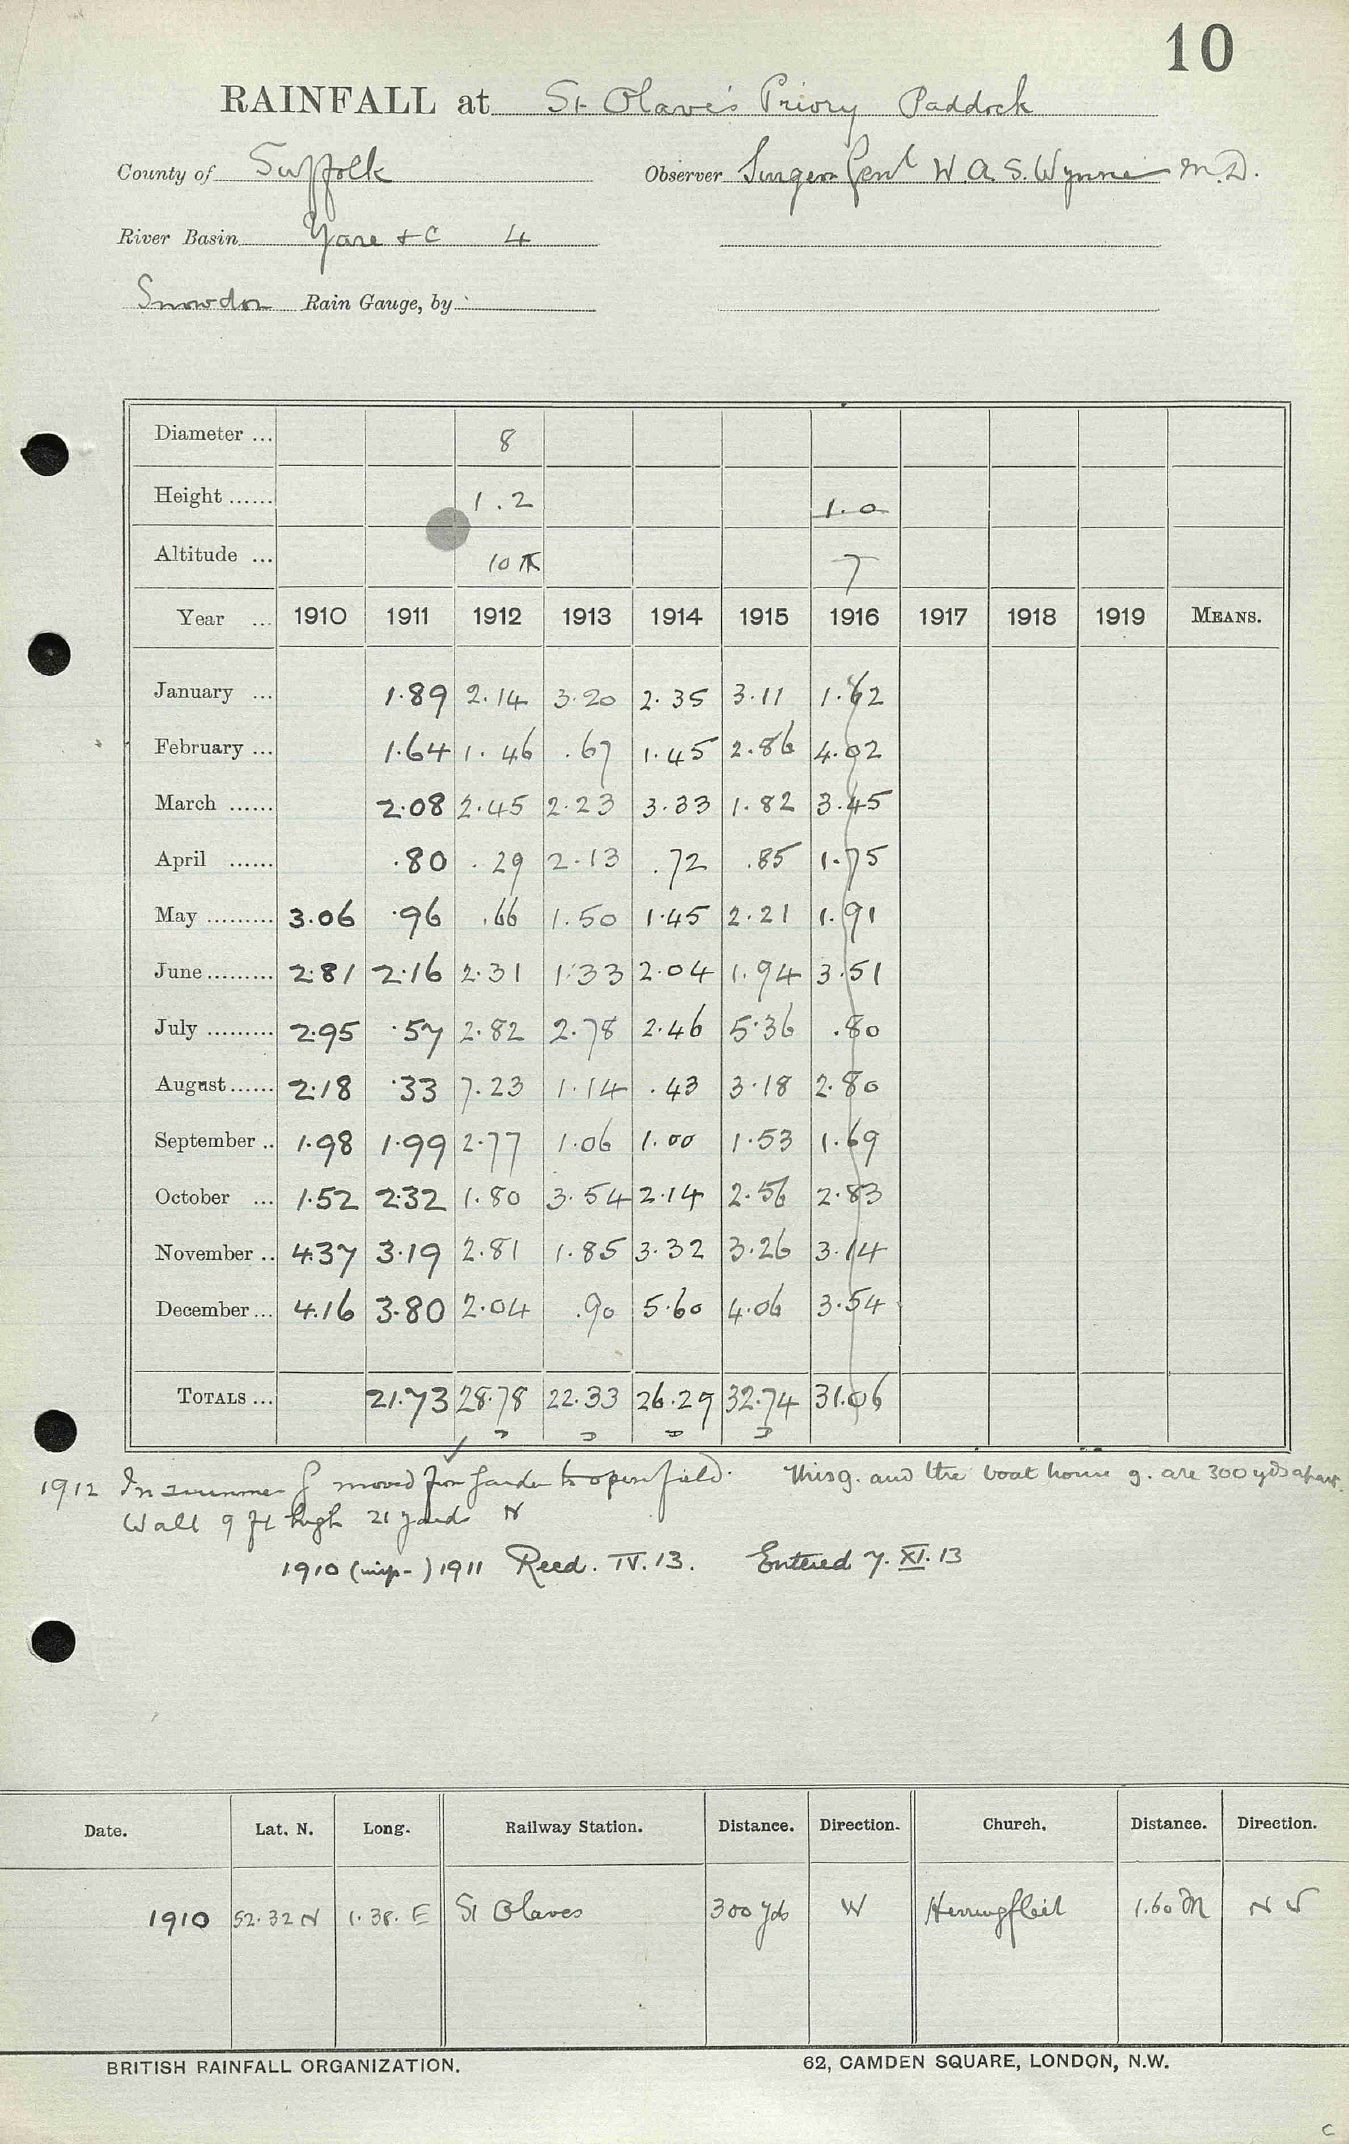 10
RAINFALL at St Olave's Priory Paddock
County of Suffolk Observer Surgeon Genl W. A. S. Wynne M.D.
River Basin Yare & C 4
Snowdon Rain Gauge, by
Diameter ... 8
Height ...... 1.2 1.0
Altitude ... 10 7
Year ... 1910 1911 1912 1913 1914 1915 1916 1917 1918 1919 MEANS.
January ... 1.89 2.14 3.20 2.35 3.11 1.62
February ... 1.64 1.46 .67 1.45 2.86 4.02
March ...... 2.08 2.45 2.23 3.33 1.82 3.45
April ...... .80 .29 2.13 .72 .85 1.75
May ......... 3.06 .96 .66 1.50 1.45 2.21 1.91
June ......... 2.81 2.16 2.31 1.33 2.04 1.94 3.51
July ......... 2.95 .57 2.82 2.78 2.46 5.36 .80
August ...... 2.18 .33 7.23 1.14 .43 3.18 2.80
September .. 1.98 1.99 2.77 1.06 1.00 1.53 1.69
October ... 1.52 2.32 1.80 3.54 2.14 2.56 2.83
November .. 4.37 3.19 2.81 1.85 3.32 3.26 3.14
December ... 4.16 3.80 2.04 .90 5.60 4.06 3.54
TOTALS ... 21.73 28.78 22.33 26.29 32.74 31.06
1912 In summer g moved from garden to open field. This g. and the boat house g. are 300 yds apart.
Wall 9 ft high 21 yards N
1910 (imp-) 1911 Recd. IV. 13. Entered 7. XI. 13
Date. Lat. N. Long. Railway Station. Distance. Direction. Church. Distance. Direction.
1910 52.32 N 1.38. E St Olaves 300 yds W Herringfleet 1.60 M
BRITISH RAINFALL ORGANIZATION. 62, CAMDEN SQUARE, LONDON, N.W.
C